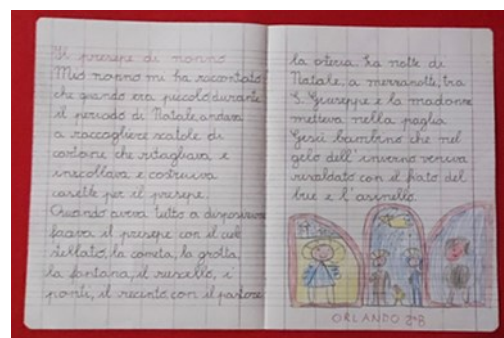 Il presepe di nonno
Mio nonno mi ha raccontato
che quando era piccolo durante
il periodo di Natale, andava
a raccogliere scatole di
cartone che ritagliava, e
incollava e costruiva
casette per il presepe.
Quando aveva tutto a disposizione
faceva il presepe con il ciel
stellato, la cometa, la grotta,
la fontana, il ruscello, i
ponti, il recinto con il pastore
la osteria. La notte di
Natale, a mezzanotte, tra
S. Giuseppe e la madonna
metteva nella paglia
Gesù bambino che nel
gelo dell'inverno veniva
riscaldato con il fiato del
bue e l'asinello.
ORLANDO 2ªB